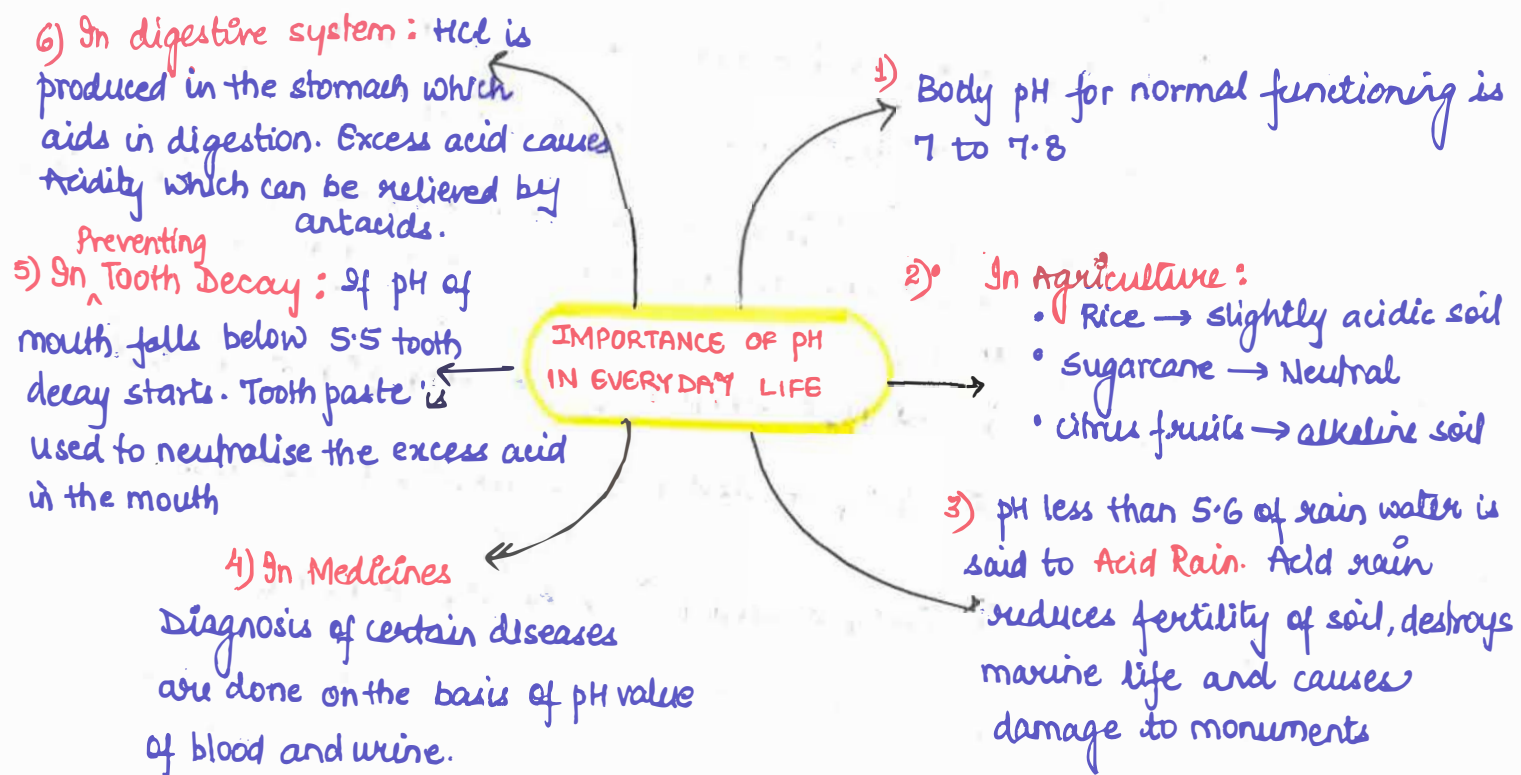 IMPORTANCE OF pH
IN EVERYDAY LIFE
1)
Body pH for normal functioning is
7 to 7.8
2) • In Agriculture :
• Rice → slightly acidic soil
• Sugarcane → Neutral
• citrus fruits → alkeline soil
3) pH less than 5.6 of rain water is
said to Acid Rain. Acid rain
reduces fertility of soil, destroys
marine life and causes
damage to monuments
4) In Medicines
Diagnosis of certain diseases
are done on the basis of pH value
of blood and urine.
Preventing
5) In ^ Tooth Decay : If pH of
mouth falls below 5.5 tooth
decay starts. Tooth paste is
used to neutralise the excess acid
in the mouth
6) In digestive system : HCl is
produced in the stomach which
aids in digestion. Excess acid causes
Acidity which can be relieved by
antacids.